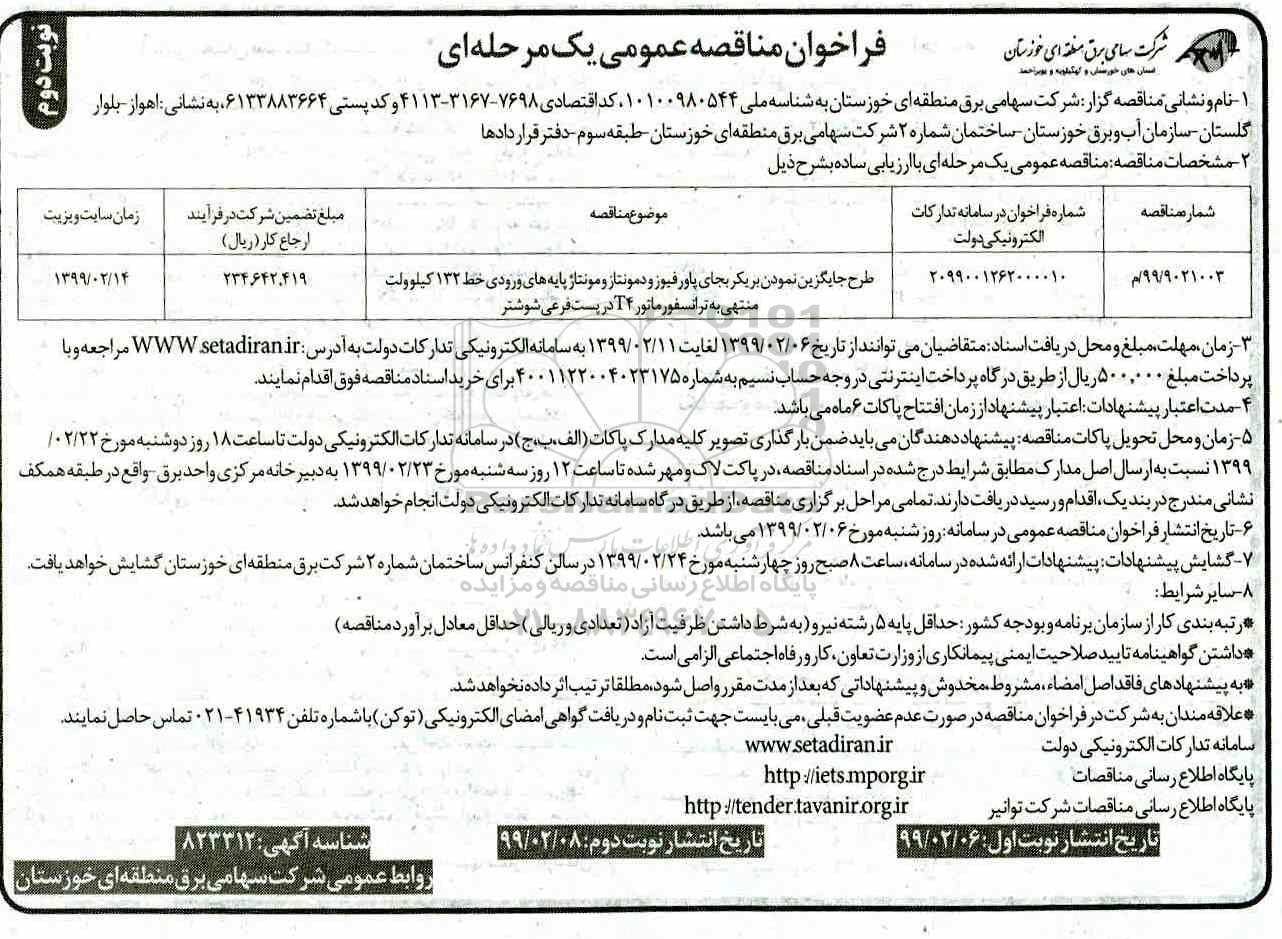 نوبت دوم
شرکت سهامی برق منطقه ای خوزستان
استان های خوزستان و کهگیلویه و بویراحمد
فراخوان مناقصه عمومی یک مرحله ای
۱-نام و نشانی مناقصه گزار: شرکت سهامی برق منطقه ای خوزستان به شناسه ملی ۱۰۱۰۰۹۸۰۵۴۴، کد اقتصادی ۷۶۹۸-۳۱۶۷-۴۱۱۳ و کد پستی ۶۱۳۳۸۸۳۶۶۴، به نشانی: اهواز-بلوار
گلستان-سازمان آب و برق خوزستان-ساختمان شماره ۲ شرکت سهامی برق منطقه ای خوزستان-طبقه سوم-دفتر قراردادها
۲-مشخصات مناقصه: مناقصه عمومی یک مرحله ای با ارزیابی ساده بشرح ذیل
شماره مناقصه
شماره فراخوان در سامانه تدارکات
الکترونیکی دولت
موضوع مناقصه
مبلغ تضمین شرکت در فرآیند
ارجاع کار (ریال)
زمان سایت ویزیت
۹۹/۹۰۲۱۰۰۳/م
۲۰۹۹۰۰۱۲۶۲۰۰۰۰۱۰
طرح جایگزین نمودن بریکر بجای پاور فیوز و دمونتاژ و مونتاژ پایه های ورودی خط ۱۳۲ کیلوولت
منتهی به ترانسفورماتور T۴ در پست فرعی شوشتر
۲۳۴,۶۴۲,۴۱۹
۱۳۹۹/۰۲/۱۴
۳-زمان، مهلت، مبلغ و محل دریافت اسناد: متقاضیان می توانند از تاریخ ۱۳۹۹/۰۲/۰۶ لغایت ۱۳۹۹/۰۲/۱۱ به سامانه الکترونیکی تدارکات دولت به آدرس: WWW.setadiran.ir مراجعه و با
پرداخت مبلغ ۵۰۰,۰۰۰ ریال از طریق درگاه پرداخت اینترنتی در وجه حساب نسیم به شماره ۴۰۰۱۱۲۲۰۰۴۰۲۳۱۷۵ برای خرید اسناد مناقصه فوق اقدام نمایند.
۴-مدت اعتبار پیشنهادات: اعتبار پیشنهاد از زمان افتتاح پاکات ۶ ماه می باشد.
۵-زمان و محل تحویل پاکات مناقصه: پیشنهاد دهندگان می باید ضمن بارگذاری تصویر کلیه مدارک پاکات (الف، ب، ج) در سامانه تدارکات الکترونیکی دولت تا ساعت ۱۸ روز دوشنبه مورخ ۰۲/۲۲/
۱۳۹۹ نسبت به ارسال اصل مدارک مطابق شرایط درج شده در اسناد مناقصه، در پاکت لاک و مهر شده تا ساعت ۱۲ روز سه شنبه مورخ ۱۳۹۹/۰۲/۲۳ به دبیرخانه مرکزی واحد برق-واقع در طبقه همکف
نشانی مندرج در بند یک، اقدام و رسید دریافت دارند. تمامی مراحل برگزاری مناقصه، از طریق درگاه سامانه تدارکات الکترونیکی دولت انجام خواهد شد.
۶-تاریخ انتشار فراخوان مناقصه عمومی در سامانه: روز شنبه مورخ ۱۳۹۹/۰۲/۰۶ می باشد.
۷-گشایش پیشنهادات: پیشنهادات ارائه شده در سامانه، ساعت ۸ صبح روز چهارشنبه مورخ ۱۳۹۹/۰۲/۲۴ در سالن کنفرانس ساختمان شماره ۲ شرکت برق منطقه ای خوزستان گشایش خواهد یافت.
۸-سایر شرایط:
*رتبه بندی کار از سازمان برنامه و بودجه کشور: حداقل پایه ۵ رشته نیرو (به شرط داشتن ظرفیت آزاد (تعدادی و ریالی) حداقل معادل برآورد مناقصه)
*داشتن گواهینامه تایید صلاحیت ایمنی پیمانکاری از وزارت تعاون، کار و رفاه اجتماعی الزامی است.
*به پیشنهادهای فاقد اصل امضاء، مشروط، مخدوش و پیشنهاداتی که بعد از مدت مقرر واصل شود، مطلقا ترتیب اثر داده نخواهد شد.
*علاقه مندان به شرکت در فراخوان مناقصه در صورت عدم عضویت قبلی، می بایست جهت ثبت نام و دریافت گواهی امضای الکترونیکی (توکن) با شماره تلفن ۴۱۹۳۴-۰۲۱ تماس حاصل نمایند.
سامانه تدارکات الکترونیکی دولت www.setadiran.ir
پایگاه اطلاع رسانی مناقصات http://iets.mporg.ir
پایگاه اطلاع رسانی مناقصات شرکت توانیر http://tender.tavanir.org.ir
تاریخ انتشار نوبت اول: ۹۹/۰۲/۰۶
تاریخ انتشار نوبت دوم: ۹۹/۰۲/۰۸
شناسه آگهی: ۸۲۳۳۱۲
روابط عمومی شرکت سهامی برق منطقه ای خوزستان
ParsNamadData
پایگاه اطلاع رسانی مناقصه و مزایده